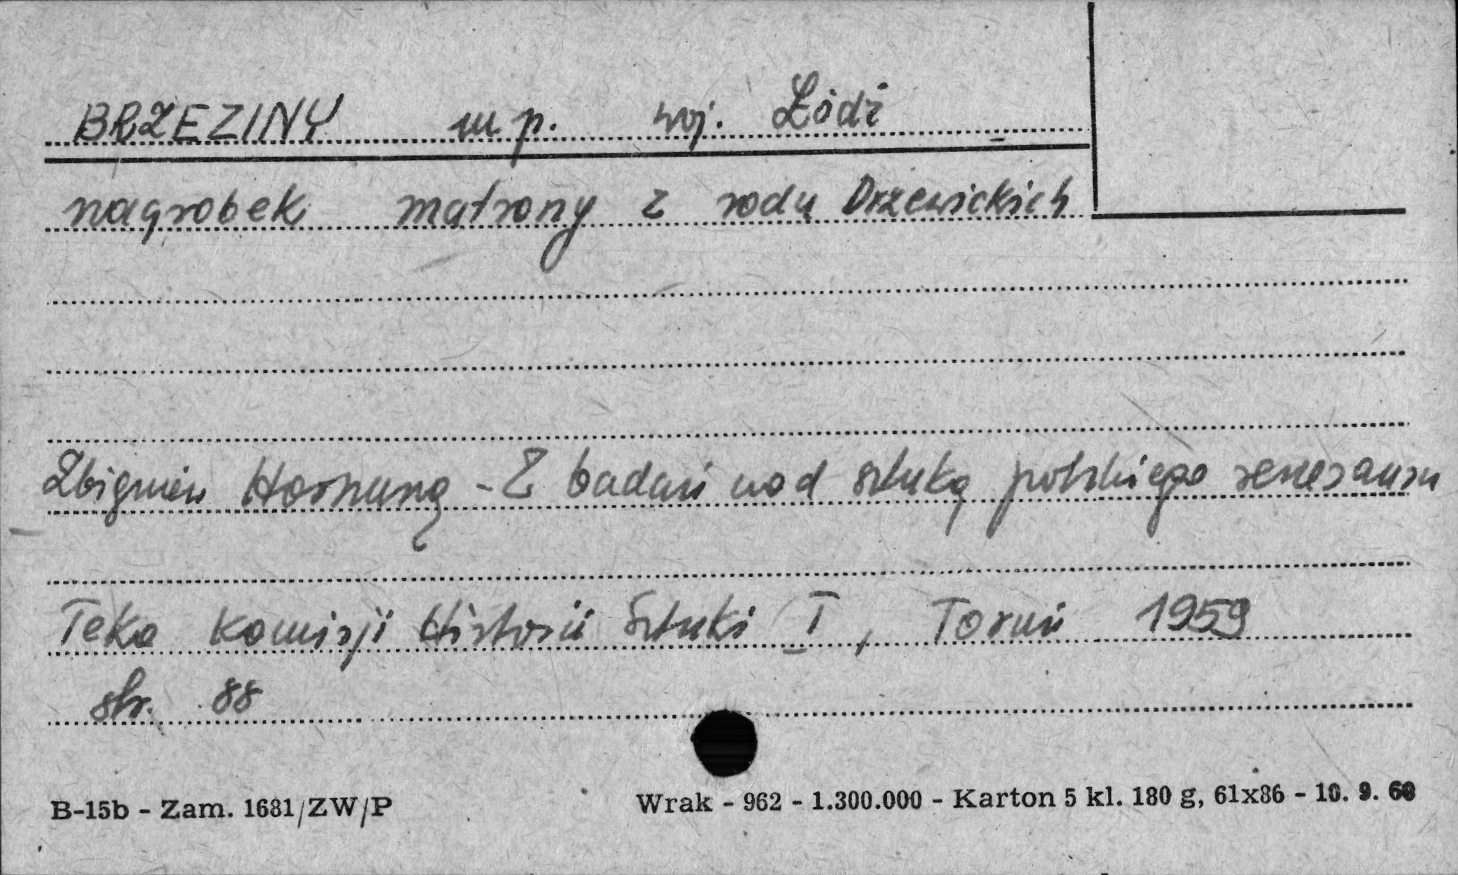 BRZEZINY m.p. woj. Łódź
nagrobek matrony z rodu Drzewickich
Zbigniew Hornung - Z badań nad sztuką polskiego renesansu
Teka Komisji Historii Sztuki I, Toruń 1959
str. 88
B-15b - Zam. 1681/ZW/P
Wrak - 962 - 1.300.000 - Karton 5 kl. 180 g, 61x86 - 10. 9. 60